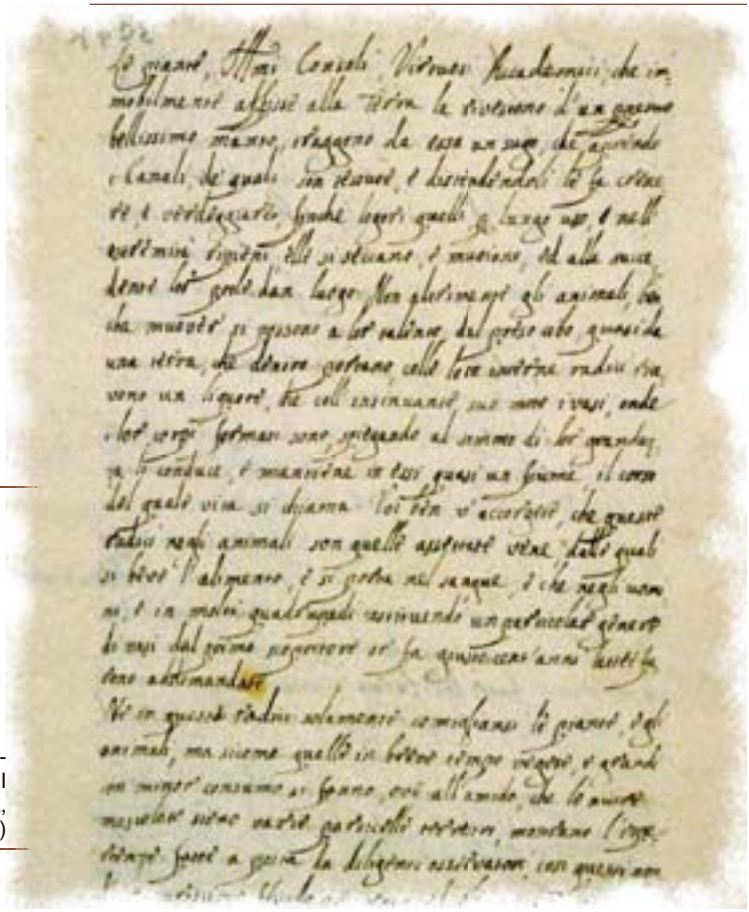 Le piante, Ill.mi Consoli, Virtuosi Accademici, che im-
mobilmente affisse alla Terra la rivestono d'un
bellissimo manto, traggono da essa un sugo, che aprendo
i Canali, de quali son tessute, e distendendoli le fa cresce
re, e verdeggiare, finchè logori quelli a lungo uso, e nell'
estremità ripieni, elle si seccano, e muoiono, ed alla succe
dente lor prole dan luogo. Non altrimenti gli animali, ben
che muover si possono a lor talento, dal preso cibo, quasi da
una terra, che dentro portano, colle loro interne radici rice
vono un liquore, che coll' insinuante suo moto i vasi, onde
i lor corpi formati sono, spiegando al sommo di lor grandez
za li conduce, e mantiene in essi quasi un fiume, il corso
del quale vita si chiama. Voi ben v'accorgete, che queste
radici negli animali son quelle assetate vene, dalle quali
si beve l'alimento, e si porta nel sangue, e che negli uomi
ni, e in molti quadrupedi costituendo un particolar genere
di vasi dal primo or fa anni lattee fu
rono addimandate
Nè in queste radici solamente somigliansi le piante, e gli
animali, ma siccome quelle in breve tempo vegete, e grandi
con minor consumo si fanno, ove all'umido, che le nutre
mescolate sieno varie particelle terrestri, mostrano l'espe-
rienze fatte a posta da diligenti osservatori, così questi non
-
l
,
)